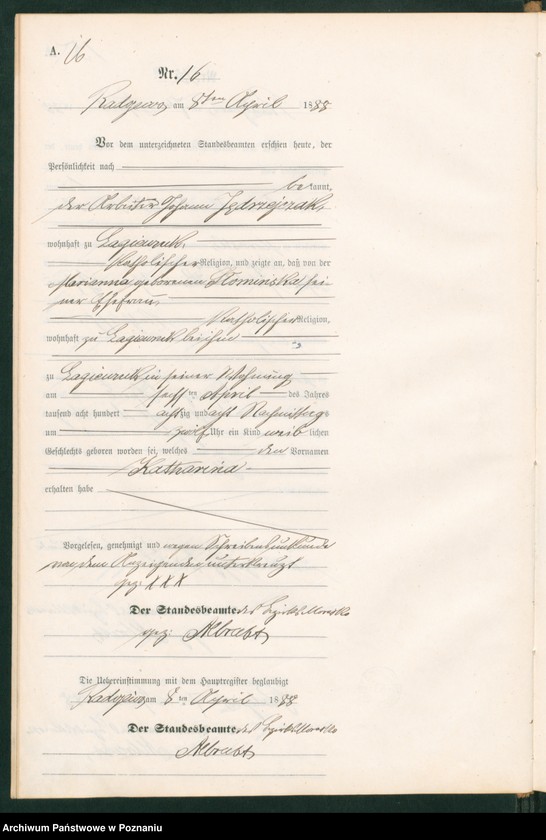 A. 16
Nr. 16
Radzewo am 8ten April 1888
Vor dem unterzeichneten Standesbeamten erschien heute, der
Persönlichkeit nach
bekannt,
der Arbeiter Johann Jędrzejczak,
wohnhaft zu Lagiewnik,
katholischer Religion, und zeigte an, daß von der
Marianna geborenen Slominska sei
ner Ehefrau,
katholischer Religion,
wohnhaft zu Lagiewnik bei ihm
zu Lagiewnik in seiner Wohnung
am sechsten April des Jahres
tausend acht hundert achtzig und acht Nachmittags
um zwölf Uhr ein Kind weiblichen
Geschlechts geboren worden sei, welches den Vornamen
Katharina
erhalten habe
Vorgelesen, genehmigt und wegen Schreibensunkunde
von dem Anzeigenden unterkreuzt
gez: XXX
Der Standesbeamte des Bezirks
gez: Albrecht
Die Uebereinstimmung mit dem Hauptregister beglaubigt
Radzewo am 8ten April 1888
Der Standesbeamte des Bezirks
Albrecht
Archiwum Państwowe w Poznaniu